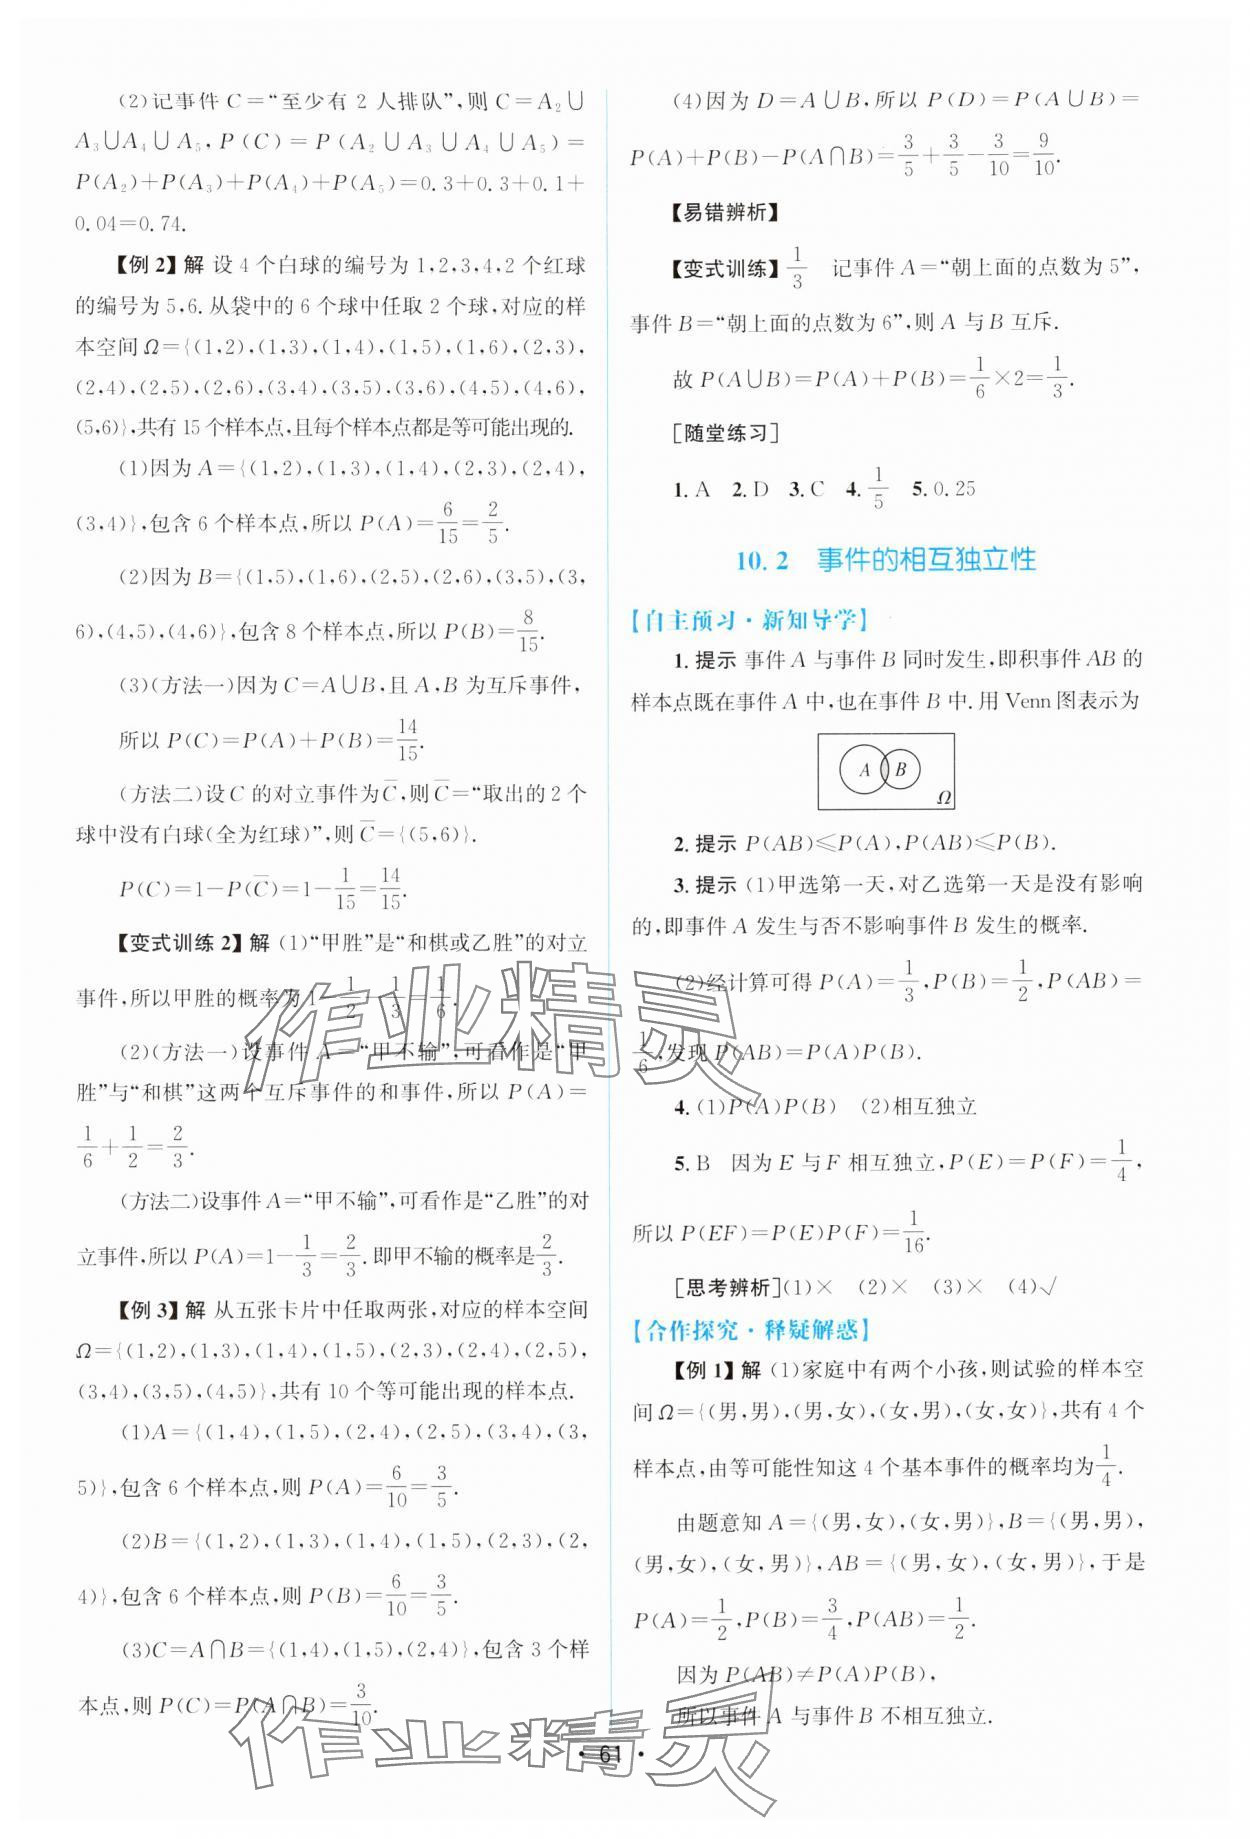 (2)记事件 C=“至少有 2 人排队”,则 C=A₂∪
A₃∪A₄∪A₅,P(C)=P(A₂∪A₃∪A₄∪A₅)=
P(A₂)+P(A₃)+P(A₄)+P(A₅)=0.3+0.3+0.1+
0.04=0.74.
【例2】解 设 4 个白球的编号为 1,2,3,4,2 个红球
的编号为 5,6.从袋中的 6 个球中任取 2 个球,对应的样
本空间 Ω={(1,2),(1,3),(1,4),(1,5),(1,6),(2,3),
(2,4),(2,5),(2,6),(3,4),(3,5),(3,6),(4,5),(4,6),
(5,6)},共有 15 个样本点,且每个样本点都是等可能出现的.
(1)因为 A={(1,2),(1,3),(1,4),(2,3),(2,4),
(3,4)},包含 6 个样本点,所以 P(A)=6/15=2/5.
(2)因为 B={(1,5),(1,6),(2,5),(2,6),(3,5),(3,
6),(4,5),(4,6)},包含 8 个样本点,所以 P(B)=8/15.
(3)(方法一)因为 C=A∪B,且 A,B 为互斥事件,
所以 P(C)=P(A)+P(B)=14/15.
(方法二)设 C 的对立事件为C̅,则C̅=“取出的 2 个
球中没有白球(全为红球)”,则 C̅={(5,6)}.
P(C)=1-P(C̅)=1-1/15=14/15.
【变式训练2】解 (1)“甲胜”是“和棋或乙胜”的对立
事件,所以甲胜的概率为 1-1/2-1/3=1/6.
(2)(方法一)设事件 A=“甲不输”,可看作是“甲
胜”与“和棋”这两个互斥事件的和事件,所以 P(A)=
1/6+1/2=2/3.
(方法二)设事件 A=“甲不输”,可看作是“乙胜”的对
立事件,所以 P(A)=1-1/3=2/3.即甲不输的概率是2/3.
【例3】解 从五张卡片中任取两张,对应的样本空间
Ω={(1,2),(1,3),(1,4),(1,5),(2,3),(2,4),(2,5),
(3,4),(3,5),(4,5)},共有 10 个等可能出现的样本点.
(1)A={(1,4),(1,5),(2,4),(2,5),(3,4),(3,
5)},包含 6 个样本点,则 P(A)=6/10=3/5.
(2)B={(1,2),(1,3),(1,4),(1,5),(2,3),(2,
4)},包含 6 个样本点,则 P(B)=6/10=3/5.
(3)C=A∩B={(1,4),(1,5),(2,4)},包含 3 个样
本点,则 P(C)=P(A∩B)=3/10.
(4)因为 D=A∪B,所以 P(D)=P(A∪B)=
P(A)+P(B)-P(A∩B)=3/5+3/5-3/10=9/10.
【易错辨析】
【变式训练】1/3 记事件 A=“朝上面的点数为 5”,
事件 B=“朝上面的点数为 6”,则 A 与 B 互斥.
故 P(A∪B)=P(A)+P(B)=1/6×2=1/3.
[随堂练习]
1.A 2.D 3.C 4.1/5 5.0.25
10.2 事件的相互独立性
【自主预习·新知导学】
1.提示 事件 A 与事件 B 同时发生,即积事件 AB 的
样本点既在事件 A 中,也在事件 B 中.用 Venn 图表示为
A B
Ω
2.提示 P(AB)≤P(A),P(AB)≤P(B).
3.提示 (1)甲选第一天,对乙选第一天是没有影响
的,即事件 A 发生与否不影响事件 B 发生的概率.
(2)经计算可得 P(A)=1/3,P(B)=1/2,P(AB)=
1/6.发现 P(AB)=P(A)P(B).
4.(1)P(A)P(B) (2)相互独立
5.B 因为 E 与 F 相互独立,P(E)=P(F)=1/4,
所以 P(EF)=P(E)P(F)=1/16.
[思考辨析](1)× (2)× (3)× (4)√
【合作探究·释疑解惑】
【例1】解 (1)家庭中有两个小孩,则试验的样本空
间 Ω={(男,男),(男,女),(女,男),(女,女)},共有 4 个
样本点,由等可能性知这 4 个基本事件的概率均为1/4.
由题意知 A={(男,女),(女,男)},B={(男,男),
(男,女),(女,男)},AB={(男,女),(女,男)},于是
P(A)=1/2,P(B)=3/4,P(AB)=1/2.
因为 P(AB)≠P(A)P(B),
所以事件 A 与事件 B 不相互独立.
·61·
作业精灵
作业精灵